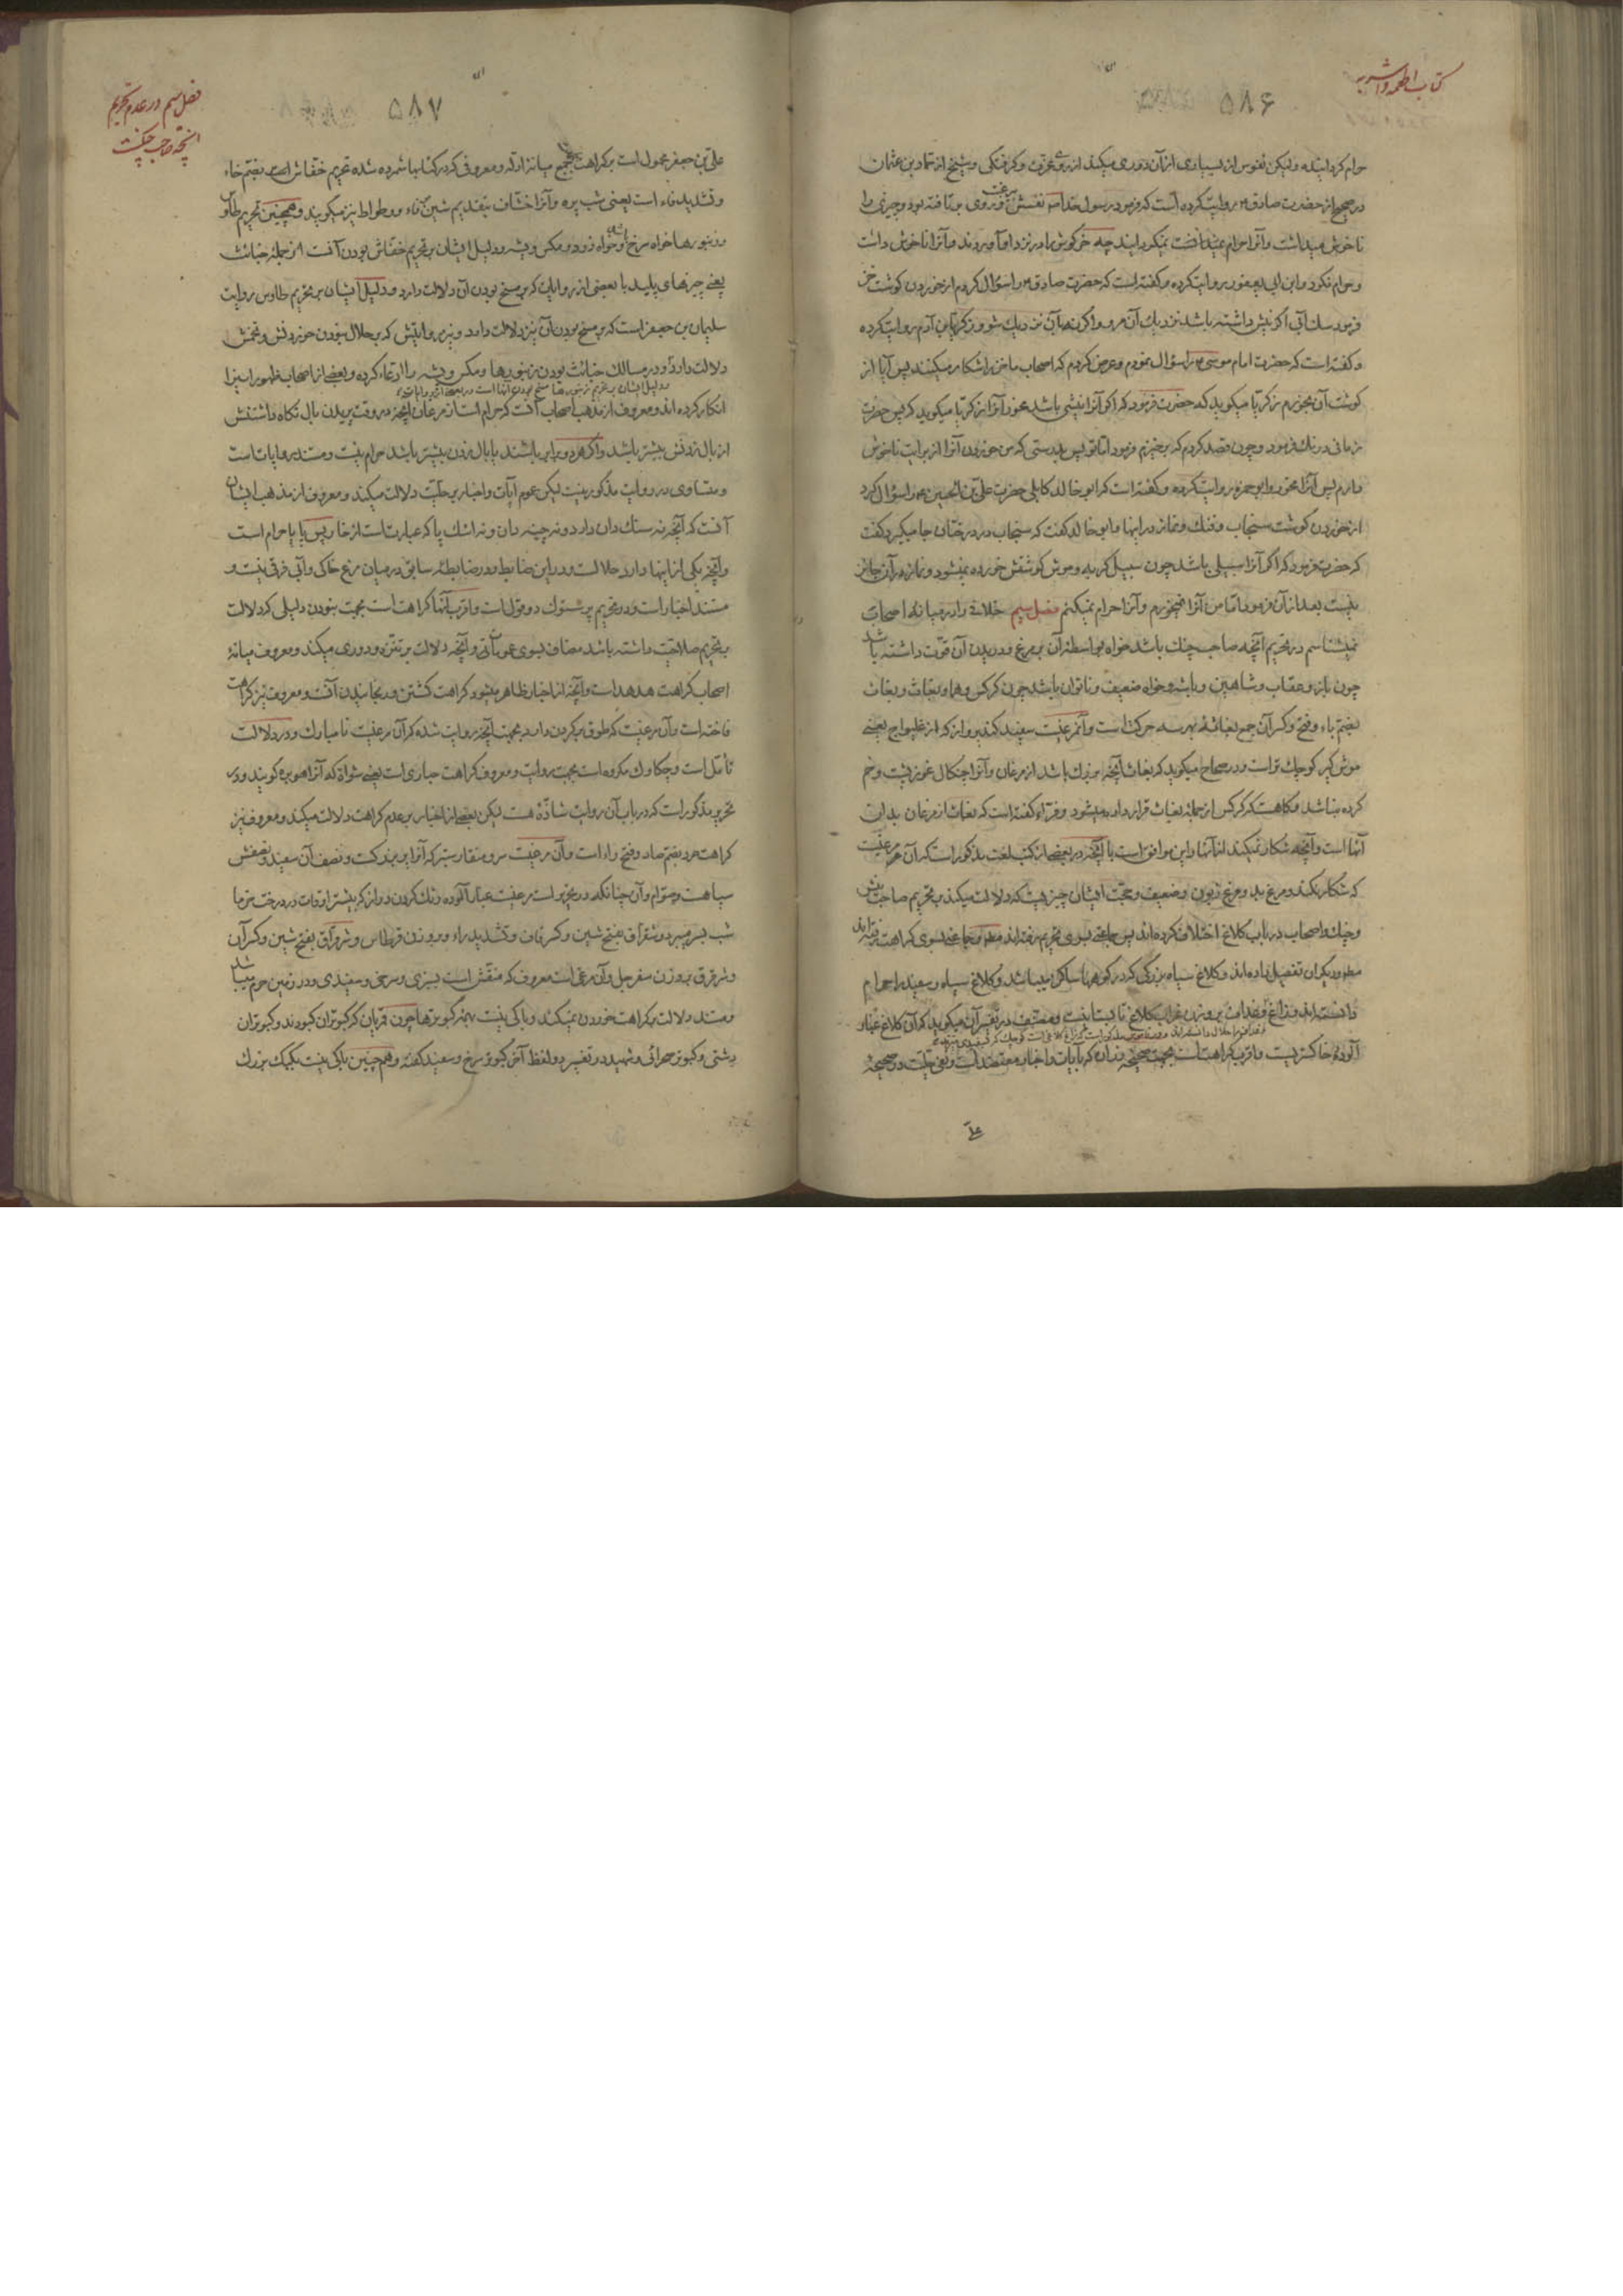 کتاب اطعمه و اشربه
۵۸۶
حرام کردانیده ولیکن نفوس از بسیاری از آن دوری میکند از روی عزت و کرفتکی و شیخ از حماد بن عثمان
در صحیح از حضرت صادق ع روایت کرده است که فرمود رسول خدا ص نفسش عزوف بود و چیزی را
ناخوش میداشت و آنرا حرام نمیکردانید چه خرکوش را در نزد او آوردند و آنرا ناخوش داشت
و حرام نکرد و ابن ابی یعفور روایت کرده و کفته است که حضرت صادق ع را سؤال کردم از خوردن کوشت خز
فرمود سک آبی اکر نیش داشته باشد نزدیک آن مرو و اکر نه آن نزدیک شو و زکریا بن آدم روایت کرده
و کفته است که حضرت امام موسی ع را سؤال نمودم و عرض کردم که اصحاب ما خز را شکار میکنند پس آیا از
کوشت آن بخورم زکریا میکوید که حضرت فرمود که اکر آنرا نیشی باشد مخور آنرا زکریا میکوید که پس حضرت
زمانی درنک فرمود و چون قصد کردم که برخیزم فرمود اما تو پس بدرستی که من خوردن آنرا از برایت ناخوش
دارم پس آنرا مخور و ابو حمزه روایت کرده و کفته است که ابو خالد کابلی حضرت علی بن الحسین ع را سؤال کرد
از خوردن کوشت سنجاب و فنک و نماز در اینها و ابو خالد کفت که سنجاب در درختان جا میکیرد کفت
که حضرت فرمود که اکر آنرا سبیلی باشد چون سبیل کربه و موش کوشتش خورده نمیشود و نماز در آن جایز
نیست بعد از آن فرمود اما من آنرا نمیخورم و آنرا حرام نمیکنم فصل سیم خلافی را در میانه اصحاب
نمیشناسم در تحریم آنچه صاحب چنک باشد خواه بواسطه آن بر مرغ و دریدن آن قوت داشته باشد
چون باز و عقاب و شاهین و باشه و خواه ضعیف و ناتوان باشد چون کرکس و هما و بغاث و بغاث
بضم باء و فتح و کسر آن جمع بغاثه بهر سه حرکت است و آن مرغیست سفید کند پرواز که از غلیواج یعنی
موش کیر کوچک تر است و در صحاح میکوید که بغاث آنچه بزرک باشد از مرغان و آنرا چنکال نیست و خم
کرده نباشد و کاهست که کرکس از جمله بغاث قرار داده میشود و فراء کفته است که بغاث از مرغان بدترین
آنها است و آنچه شکار نمیکند از آنها و این موافق است با آنچه در بعضی از کتب لغت مذکور است که آن هر مرغیست
که شکار نکند و مرغ بد و مرغ زبون و ضعیف و حجت ایشان چیزیست که دلالت میکند بر تحریم صاحب نیش
و چنک و اصحاب در باب کلاغ اختلاف کرده اند پس جماعتی بسوی تحریم رفته اند مطلقا و جماعتی بسوی کراهت رفته اند
مطلقا و دیکران تفصیل داده اند و کلاغ سیاه بزرکی که در کوهها ساکن میباشد و کلاغ سیاه و سفید را حرام
دانسته اند و زاغ و غداف بر وزن غراب کلاغ تابستانیست و مصنف در تفسیر آن میکوید که آن کلاغ غبار
آلوده خاکستریست و اقرب کراهت است بجهت صحیحه زراره که بآیات و اخبار معتضد است و نفی حلیت در صحیحه
علی
فصل سیم در عدم تحریم
آنچه صاحب چنکست
۵۸۷
علی بن جعفر محمول است بر کراهت بجهت جمع میانه ادله و معروفی که در کتابها شمرده شده تحریم خفاش است بضم خاء
و تشدید فاء است یعنی شب پره و آنرا خشاف بتقدیم شین بر فاء و وطواط نیز میکویند و همچنین تحریم طاوس
و زنبورها خواه سرخ باشد و خواه زرد و مکس و پشه و دلیل ایشان بر تحریم خفاش بودن آنست از جمله خبائث
یعنی چیزهای پلید با بعضی از روایات که بر مسخ بودن آن دلالت دارد و دلیل ایشان بر تحریم طاوس روایت
سلیمان بن جعفر است که بر مسخ بودن آن نیز دلالت دارد و نیز روایتش که بر حلال نبودن خوردنش و تخمش
دلالت دارد و در مسالک خبائث بودن زنبورها و مکس و پشه را ادعاء کرده و بعضی از اصحاب ظهور اینرا
انکار کرده اند و معروف از مذهب اصحاب آنست که حرام است از مرغان آنچه در وقت پریدن بال نکاه داشتنش
از بال زدنش بیشتر باشد و اکر هر دو برابر باشند یا بال زدن بیشتر باشد حرام نیست و مستند روایات است
و متساوی در روایت مذکور نیست لیکن عموم آیات و اخبار بر حلیت دلالت میکند و معروف از مذهب ایشان
آنست که آنچه نه سنک دان دارد و نه چینه دان و نه انکشت پا که عبارت است از خار پس پا یا حرام است
و آنچه یکی از اینها دارد حلالست و در این ضابطه و در ضابطه سابق در میان مرغ خاکی و آبی فرقی نیست و
مستند اخبار است و در تحریم پرستوک دو قول است و اقرب آنها کراهت است بجهت نبودن دلیلی که دلالت
بر تحریم صلاحیت داشته باشد مضاف بسوی عمومات و آنچه دلالت بر تنزه و دوری میکند و معروف میانه
اصحاب کراهت هدهد است و آنچه از اخبار ظاهر میشود کراهت کشتن و رنجانیدن آنست و معروف نیز کراهت
فاخته است و آن مرغیست که طوق بر کردن دارد بجهت آنچه روایت شده که آن مرغیست نامبارک و در دلالت
تأمل است و چکاوک مکروه است بجهت روایت و معروف کراهت حباری است یعنی شوات که آنرا هوبره کویند و در
تحریر مذکور است که در باب آن روایت شاذه هست لیکن بعضی از اخبار بر عدم کراهت دلالت میکند و معروف نیز
کراهت صرد بضم صاد و فتح راء است و آن مرغیست سر و منقار ستبر که آنرا پر بزرکست و نصف آن سفید و نصفش
سیاهست و صوام و آن چنانکه در تحریر است مرغیست غبار آلوده رنک کردن دراز که بیشتر اوقات در درخت خرما
شب بسر میبرد و شقراق بفتح شین و کسر قاف و تشدید راء و بر وزن قرطاس و شرقراق بفتح شین و کسر آن
و شرقرق بر وزن سفرجل و آن مرغی است معروف که منقش است بسبزی و سرخی و سفیدی و در زمین حرم میباشد
و مستند دلالت بر کراهت خوردن نمیکند و باکی نیست بهمه کبوترها چون قمریان که کبوتران کبودند و کبوتران
دشتی و کبوتر صحرائی و شهید در تفسیر دو لفظ آخر کبوتر سرخ و سفید کفته و همچنین باکی نیست بکبک بزرک